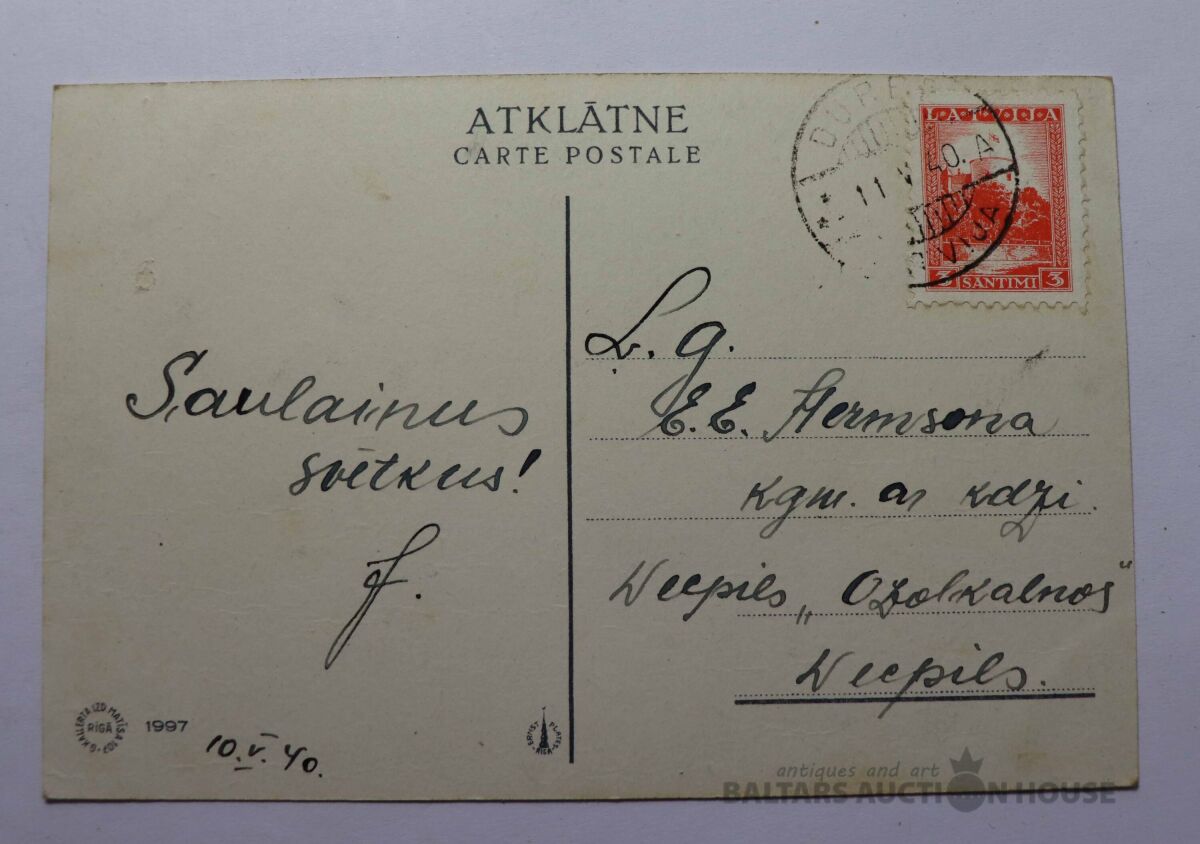 ATKLĀTNE
CARTE POSTALE
LATVIJA
3 SANTIMI 3
11 V 40. A
Saulainus
svētkus!
L. g.
E. E. Hermsona
kgm. ar kdzi.
Vecpils „Ozolkalnos"
Vecpils.
G. KALLERTA IZD. MATĪSA 103
RĪGĀ
1997
10. V. 40.
ERNST PLATES RĪGĀ
antiques and art
BALTARS AUCTION HOUSE